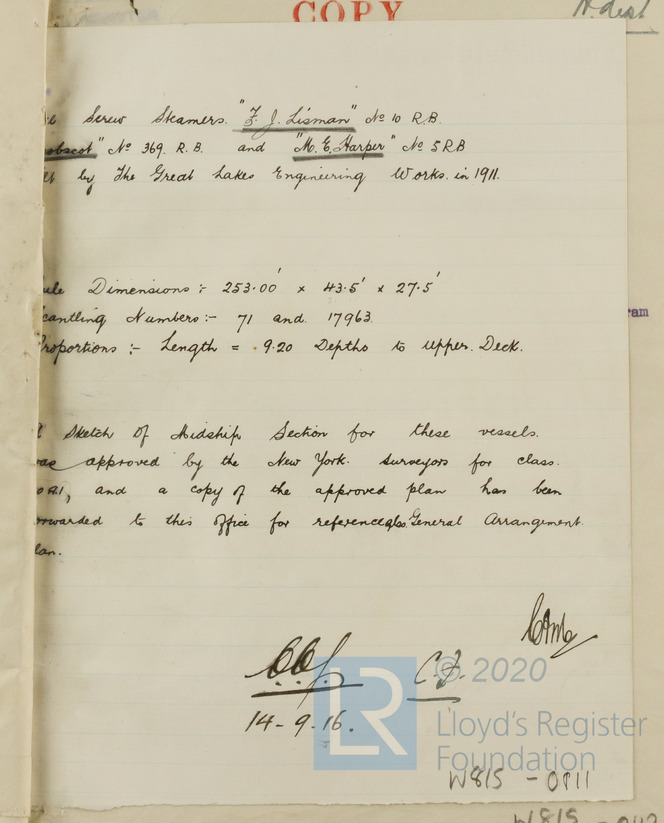 COPY
Screw Steamers. "F. J. Lisman" No 10 R.B.
obscot" No 369. R.B. and "M. E. Harper" No 5 RB
by The Great Lakes Engineering Works. in 1911.
ule Dimensions :- 253.00' x 43.5' x 27.5'
cantling Numbers:- 71 and 17963.
roportions :- Length = 9.20 Depths to upper Deck.
ram
Sketch of Midship Section for these vessels.
was approved by the New York Surveyors for class.
and a copy of the approved plan has been
orwarded to this office for reference, also General Arrangement
lan.
14-9-16.
© 2020
LR
Lloyd's Register
Foundation
W815 - 0811